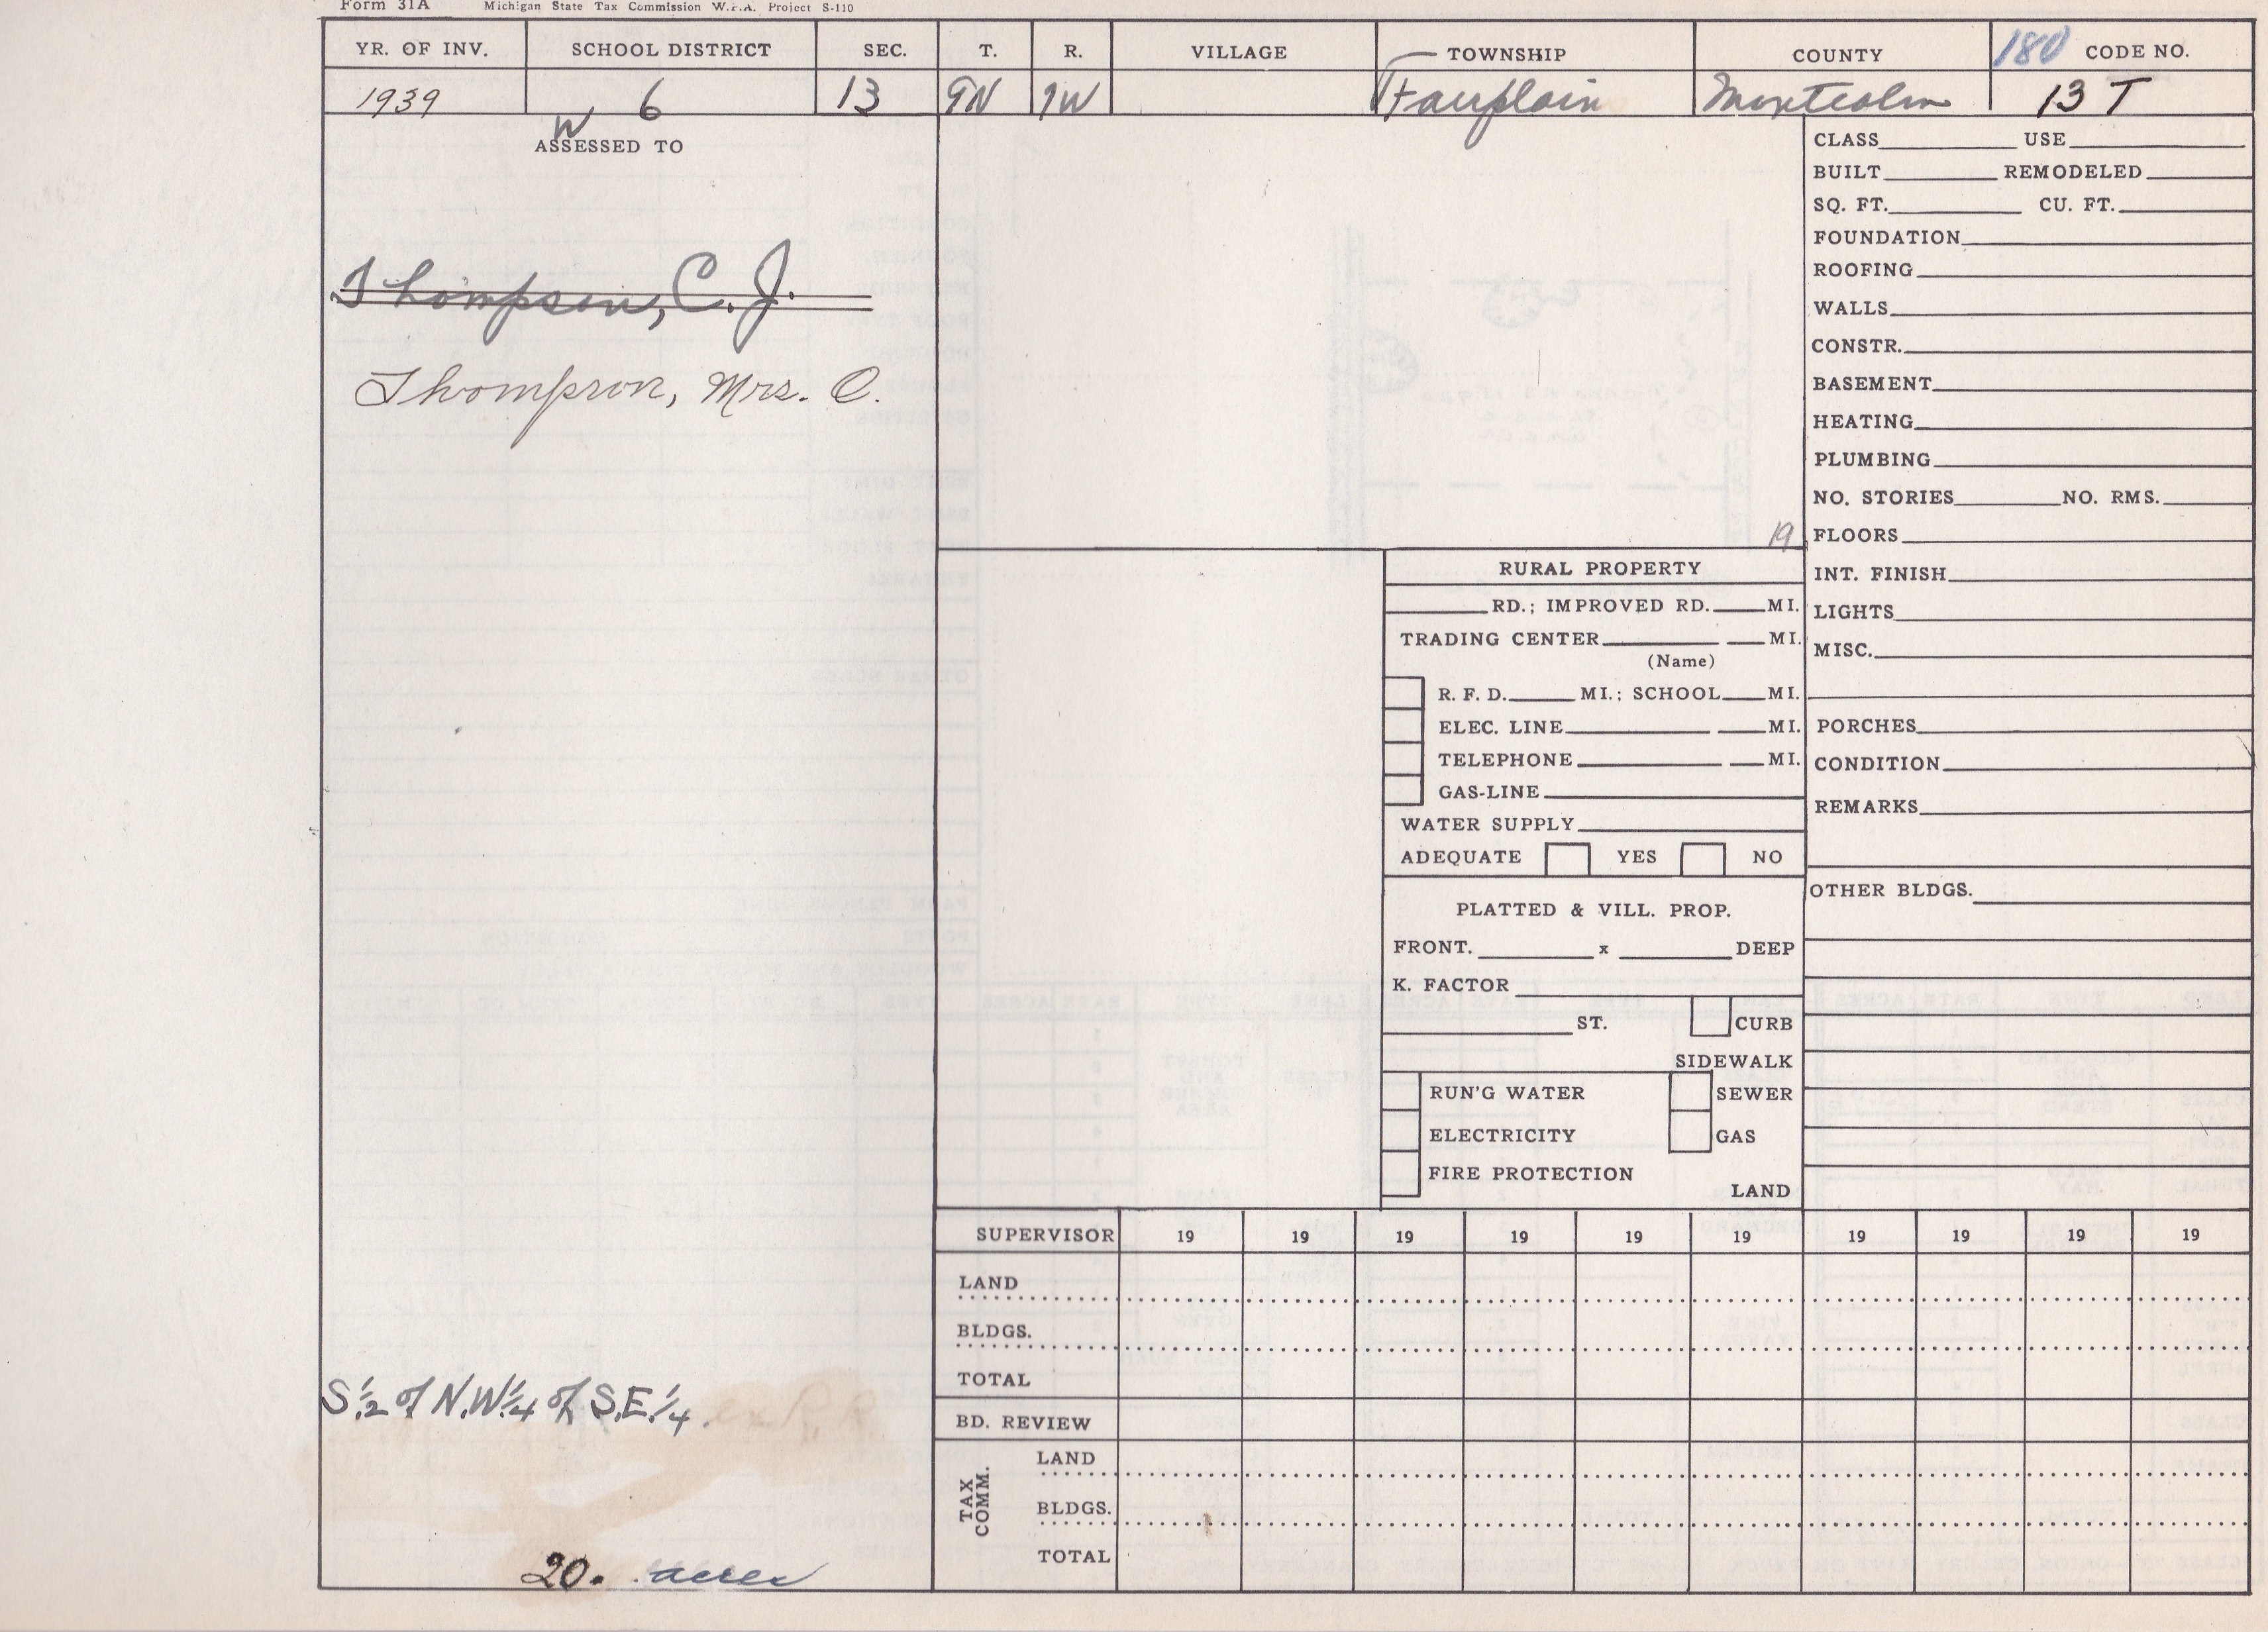 Form 31A Michigan State Tax Commission W.P.A. Project S-110
YR. OF INV. SCHOOL DISTRICT SEC. T. R. VILLAGE TOWNSHIP COUNTY 180 CODE NO.
1939 6 13 9N 7W Fairplain Montcalm 13 T
W
ASSESSED TO
Thompson, C. J.
Thompson, Mrs. C.
S 1/2 of N.W. 1/4 of S.E. 1/4
20. acres
19
RURAL PROPERTY
RD.; IMPROVED RD. MI.
TRADING CENTER MI.
(Name)
R. F. D. MI.; SCHOOL MI.
ELEC. LINE MI.
TELEPHONE MI.
GAS-LINE
WATER SUPPLY
ADEQUATE YES NO
PLATTED & VILL. PROP.
FRONT. x DEEP
K. FACTOR
ST. CURB
SIDEWALK
RUN'G WATER SEWER
ELECTRICITY GAS
FIRE PROTECTION
LAND
CLASS USE
BUILT REMODELED
SQ. FT. CU. FT.
FOUNDATION
ROOFING
WALLS
CONSTR.
BASEMENT
HEATING
PLUMBING
NO. STORIES NO. RMS.
FLOORS
INT. FINISH
LIGHTS
MISC.
PORCHES
CONDITION
REMARKS
OTHER BLDGS.
SUPERVISOR 19 19 19 19 19 19 19 19 19 19
LAND
BLDGS.
TOTAL
BD. REVIEW
TAX COMM.
LAND
BLDGS.
TOTAL